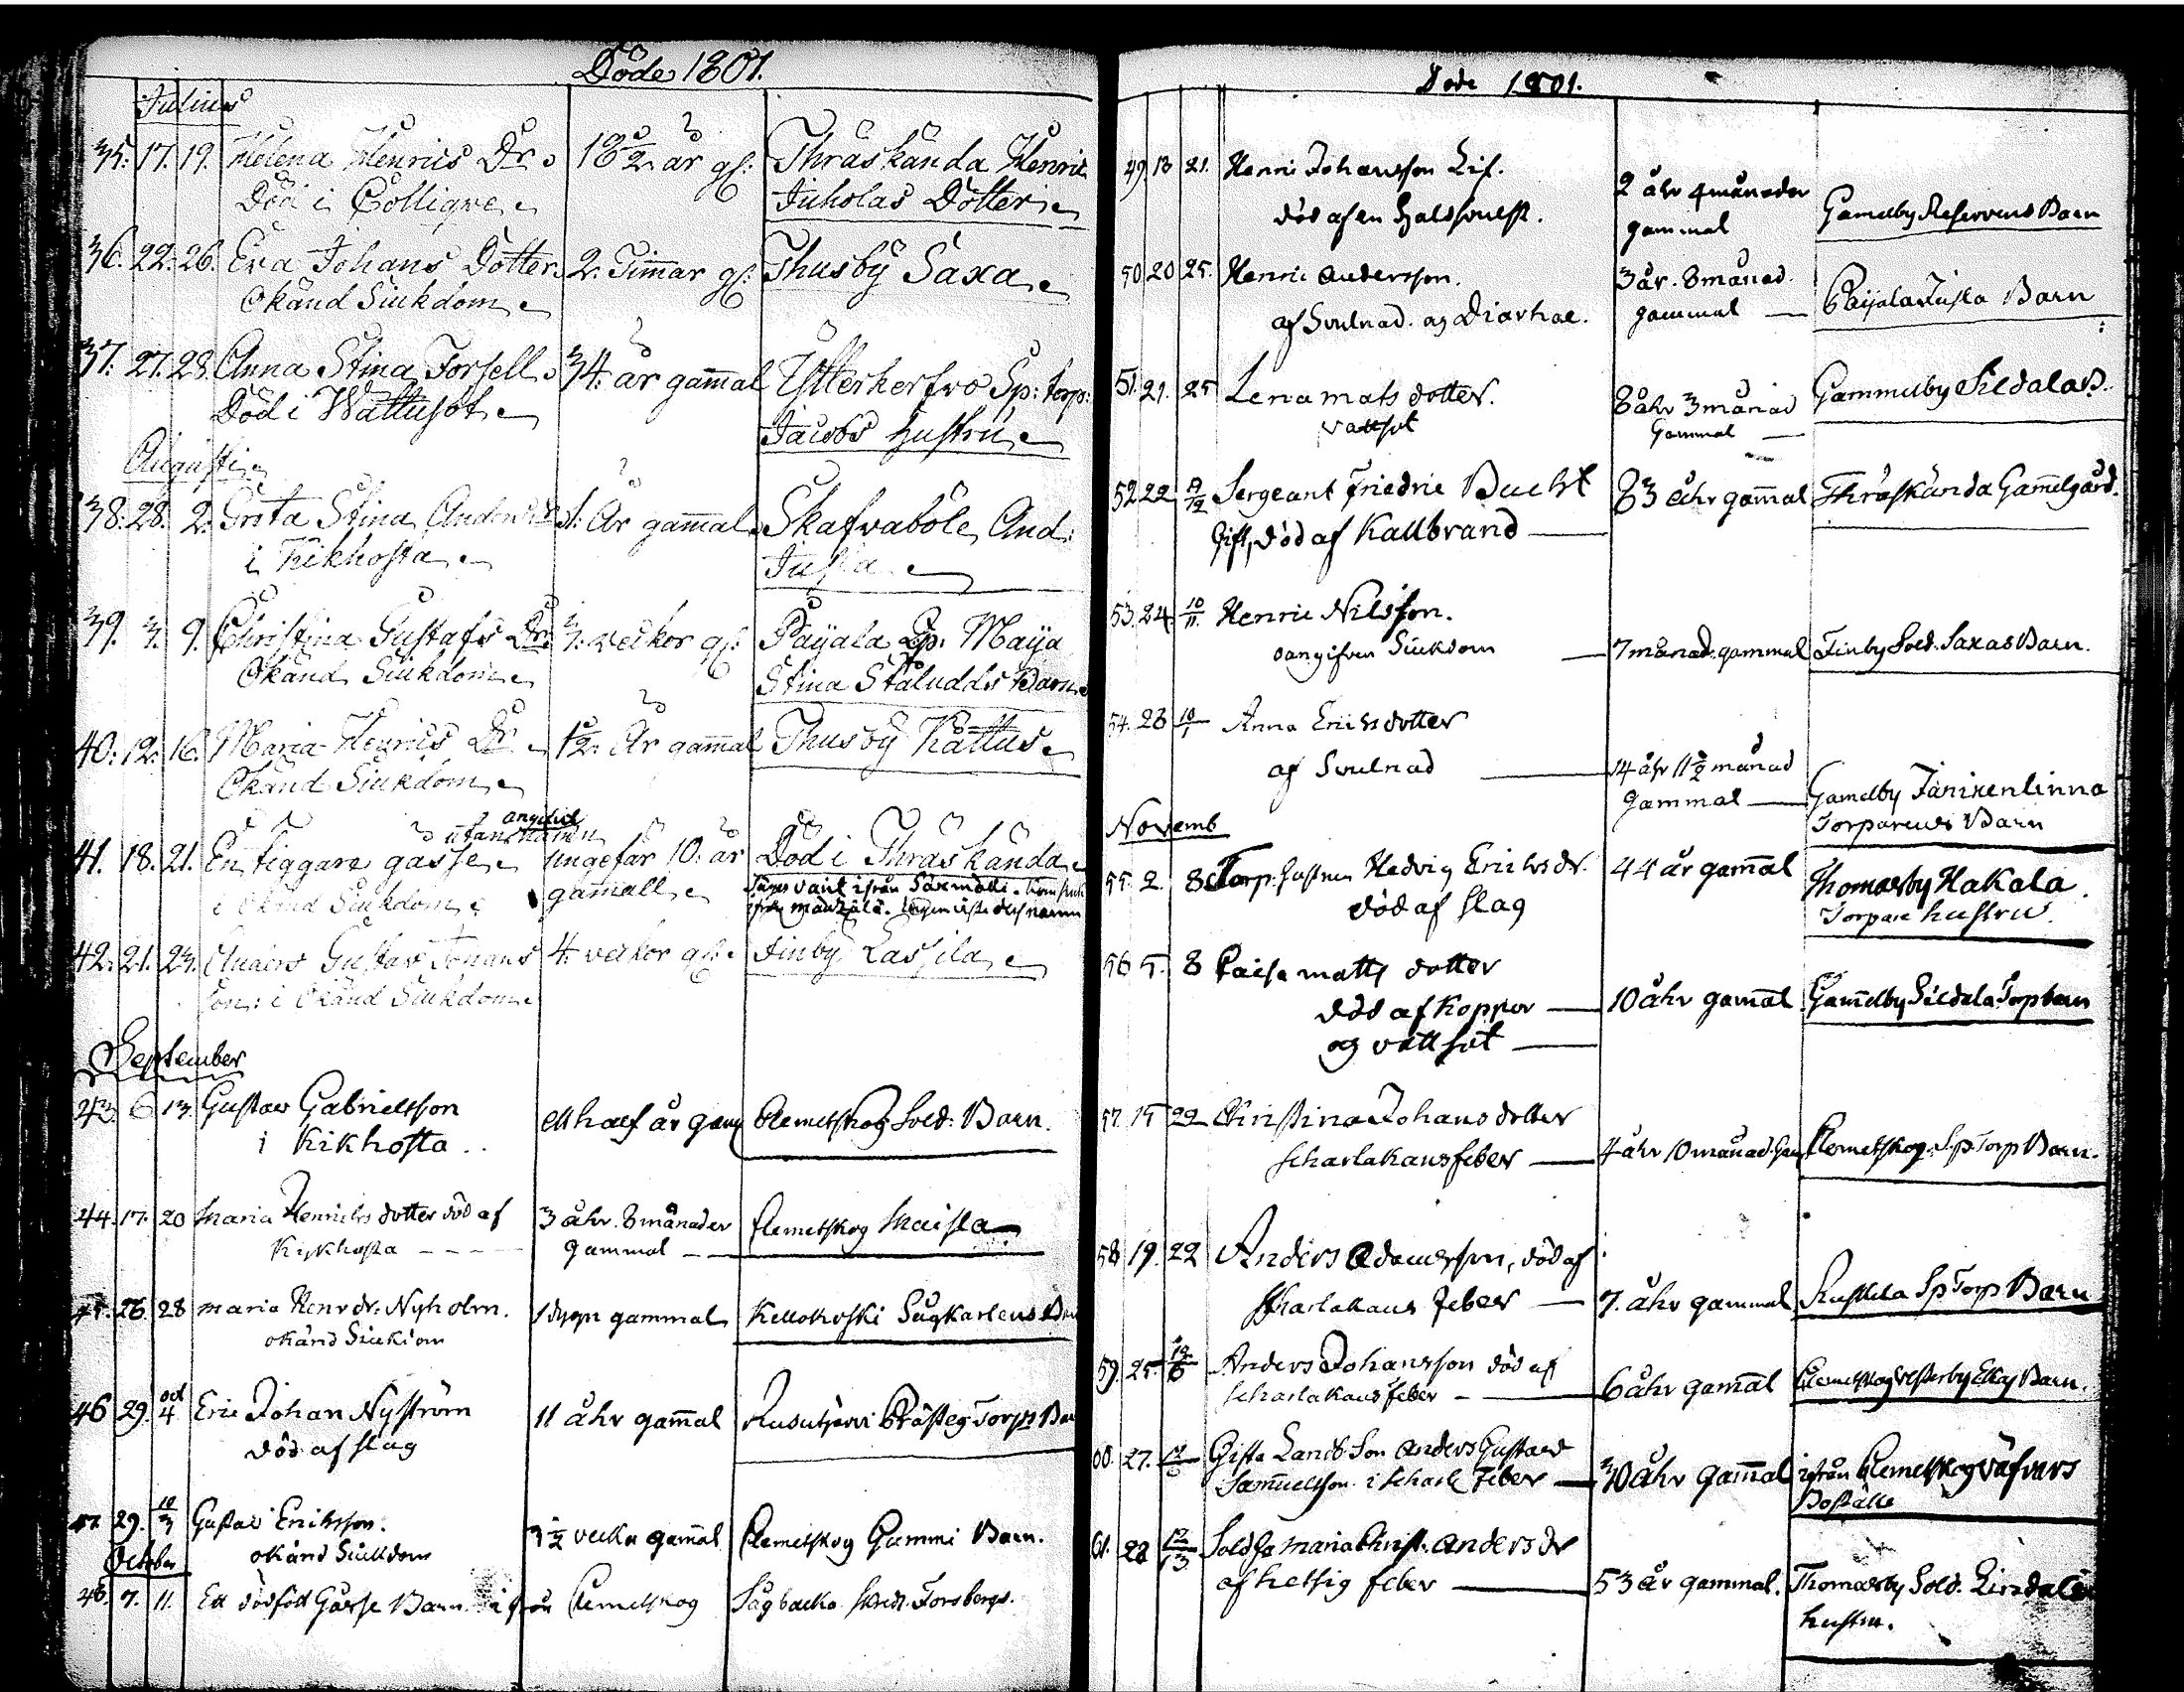 Döde 1801.
Julius
35. 17. 19. Helena Henrics Dr. 18 1/2 år gl: Thräskända Henric
Död i Collique Juholas Dotter
36. 22. 26. Eva Johans Dotter 2. Timar gl: Thusby Saxa
Okänd Siukdom
37. 27. 28. Anna Stina Forsell 34: år gamal Ytterkerfvo Sp: torp:
Död i Wattusot Jacobs Hustru
Augusti
38. 28. 2. Greta Stina Anders Dr. 1: År gamal Skafvaböle And:
i Kikhosta Jussila
39. 3. 9. Christina Gustafs Dr. 7: veckor gl: Paijala Qp: Maija
Okänd Siukdom Stina Ståludds Barn
40. 12. 16. Maria Henrics Dr. 1 1/2 År gamal Thusby Kåttus
Okänd Siukdom
angifvit
utan namn
41. 18. 21. En tiggare gasse ungefär 10: år Död i Thräskända
i Okänd Siukdom gamall
42. 21. 23. Anders Gustav Johans 4: veckor gl: Finby Lassila
son: i Okänd Siukdom
September
43. 6 13. Gustav Gabrielsson ett half år gam Clemetskog Sold: Barn.
i Kikhosta
44. 17. 20 Maria Henrichs dotter död af 3 åhr. 8 månader Clemetskog Maisla
Kikhosta gammal
45. 26. 28 Maria Henr dr. Nyholm. 1 dygn gammal Kellokoski Sugkarlens Barn
okänd Siukdom
46 29. oct 4 Eric Johan Nyström 11 åhr gamal Rusutjervi Prästeg Torps Barn
död af slag
47. 29. 10/3 Gustav Eriksson. 3 1/2 vecka gamal Clemetskog Gummi Barn.
October okänd Siukdom
48. 7. 11. Ett dödfött Gåsse Barn ifrån Clemetskog Sågbacka Forsbergs.
Döde 1801.
49. 13 21. Henric Johansson Lif. 2 åhr 4 månader Gamelby Reservens Barn
död af en halssvulst. gammal
50 20 25. Henric Andersson. 3 år. 8 månad. Paijala Jusla Barn
af Svulnad. og Diarhae. gammal
51. 21. 25 Lena mats dotter. 8 åhr 3 månad Gammelby Sildala B.
vattsot Gammal
52 22 Sergeant Friedric Bucht 83 åhr gamal Thräskända Gamelgård.
Gift, död af Kallbrand
53. 24. 10/11. Henric Nilsson.
oangifven Siukdom 7 månad. gammal Finby Sold. Saxas Barn.
54. 28 10/1 Anna Eriksdotter
af Svulnad 14 åhr 11 1/2 månad Gamelby Jänixenlinna
gammal Torparens Barn
Novemb
55. 2. 8 Torp. hustrun Hedvig Erichs dr. 44 år gamal Thomasby Hakala
död af slag Torpare hustru.
56 5. 8 Caisa matts dotter
död af Koppor 10 åhr gamal Gamelby Sildala Torp barn
og vattsot
57. 15 22 Christina Johans dotter
scharlakansfeber 4 åhr 10 månad. gam Clemetskog Sp Torp Barn.
58 19. 22 Anders Adamsson, död af
scharlakans feber 7. åhr gammal Ruskela Sp Torp Barn
59. 25. 12/6 Anders Johansson död af
scharlakansfeber 6 åhr gamal Clemetskog Westerby Barn.
60. 27. Gifte Landb Son Anders Gustaed
Samuelsson. i Scharl Feber 30 åhr gamal ifrån Clemetskog Räfvars
Boställe
61. 28 12/13 Sold Ha Maria Christ. Anders dr
af hetsig feber 53 år gammal. Thomasby Sold. Lindalens
hustru.